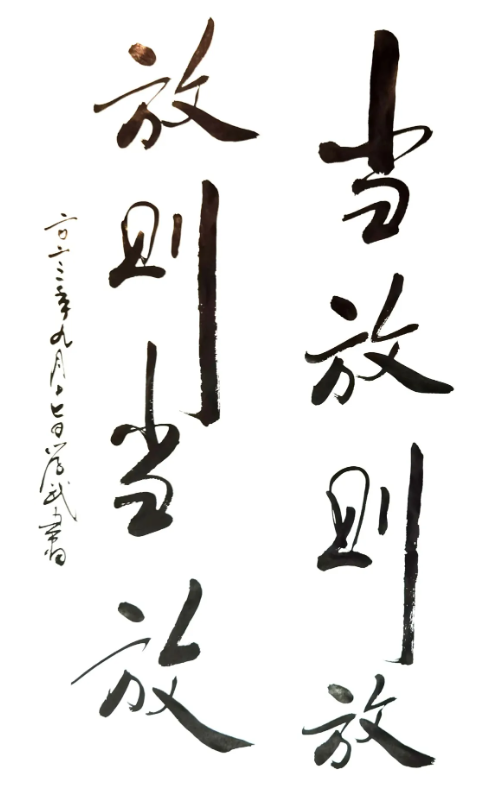 当放则放
放则当放
二〇二三年九月十七日武书